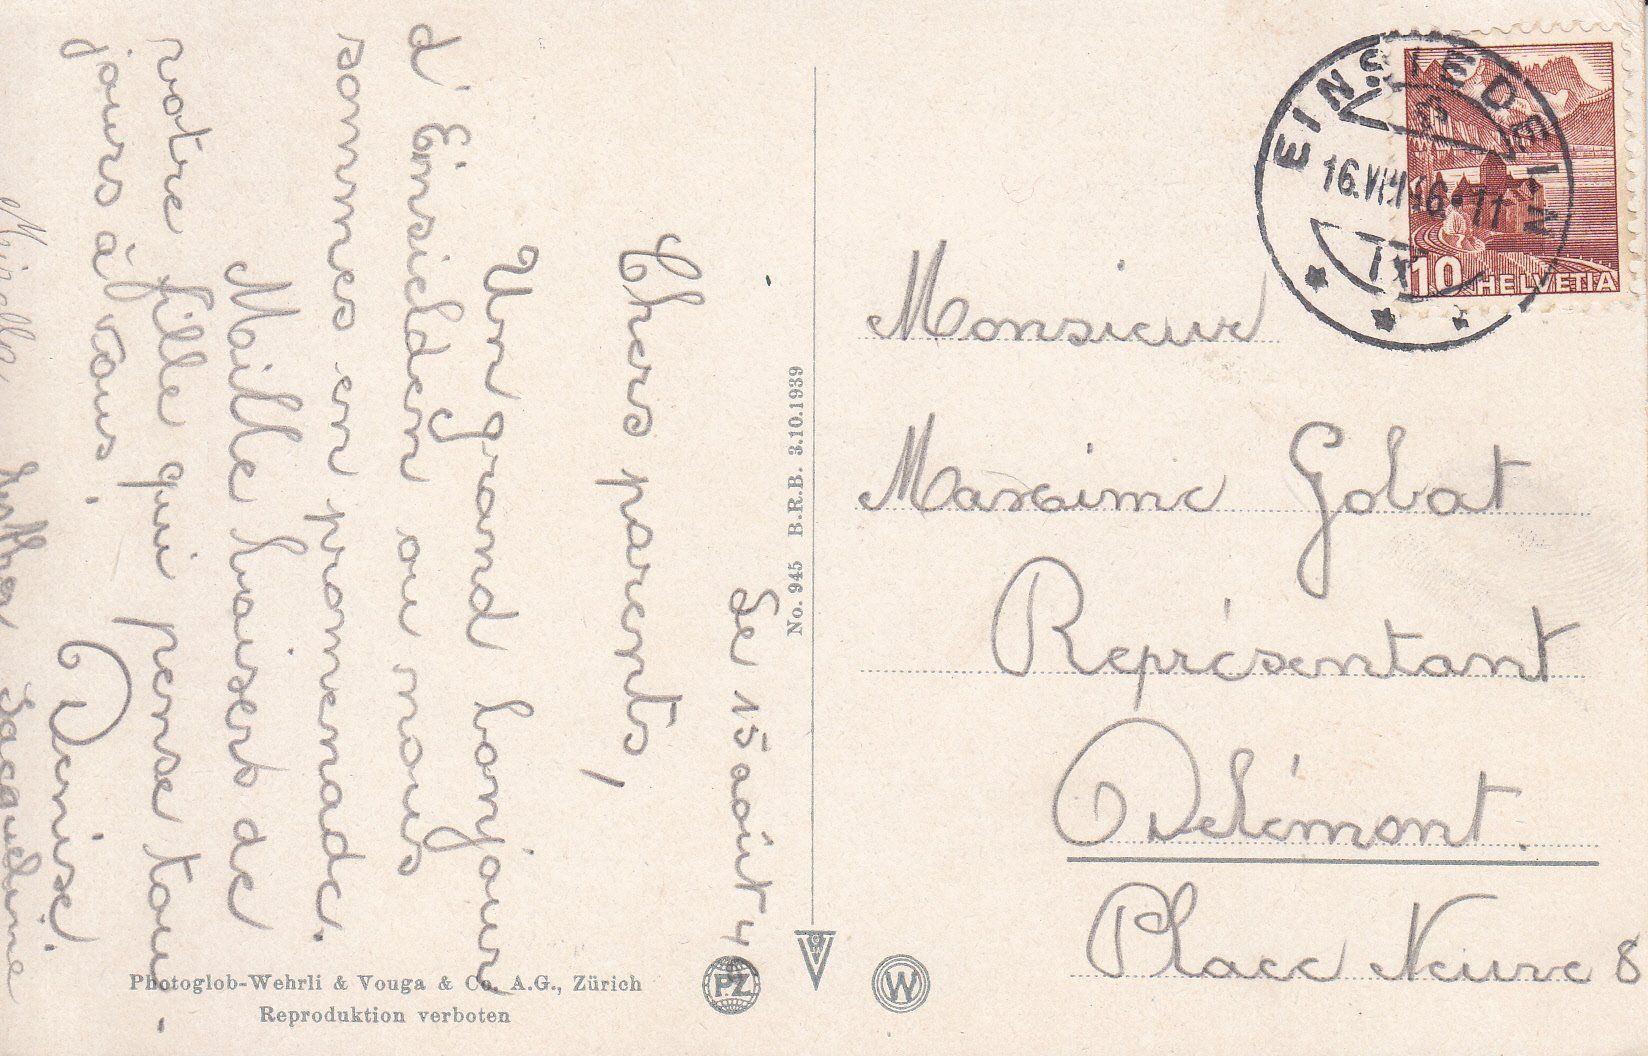 Le 15 août 46
Chers parents,
Un grand bonjour
d'Einsielden ou nous
sommes en promenade.
Maille baisers de
votre fille qui pense tou-
jours à vous.
Denise.
Mirella
Jacqueline
No. 945 B.R.B. 3.10.1939
EINSIEDELN
16.VIII.46-11
10 HELVETIA
Monsieur
Maxime Gobat
Représentant
Delémont.
Place Neuve 8
Photoglob-Wehrli & Vouga & Co. A.G., Zürich
Reproduktion verboten
PZ
W